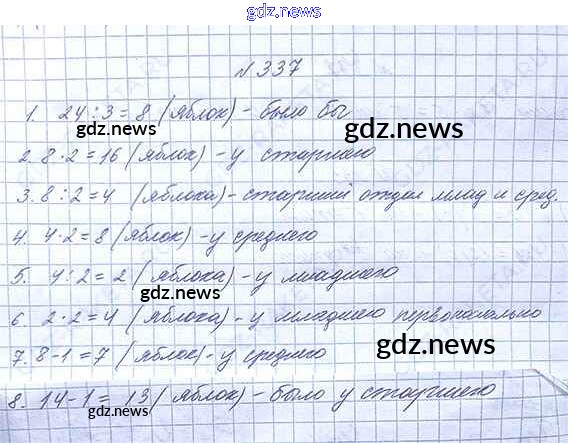 gdz.world
№ 337
1. 24 : 3 = 8 (яблок) - было бы
gdz.world
gdz.world
2. 8 · 2 = 16 (яблок) - у старшего
3. 8 : 2 = 4 (яблока) - старший отдал млад и сред.
gdz.world
4. 4 · 2 = 8 (яблок) - у среднего
5. 4 : 2 = 2 (яблока) - у младшего
gdz.world
6. 2 · 2 = 4 (яблока) - у младшего первоначально
7. 8 - 1 = 7 (яблок) - у среднего
gdz.world
8. 14 - 1 = 13 (яблок) - было у старшего
gdz.world